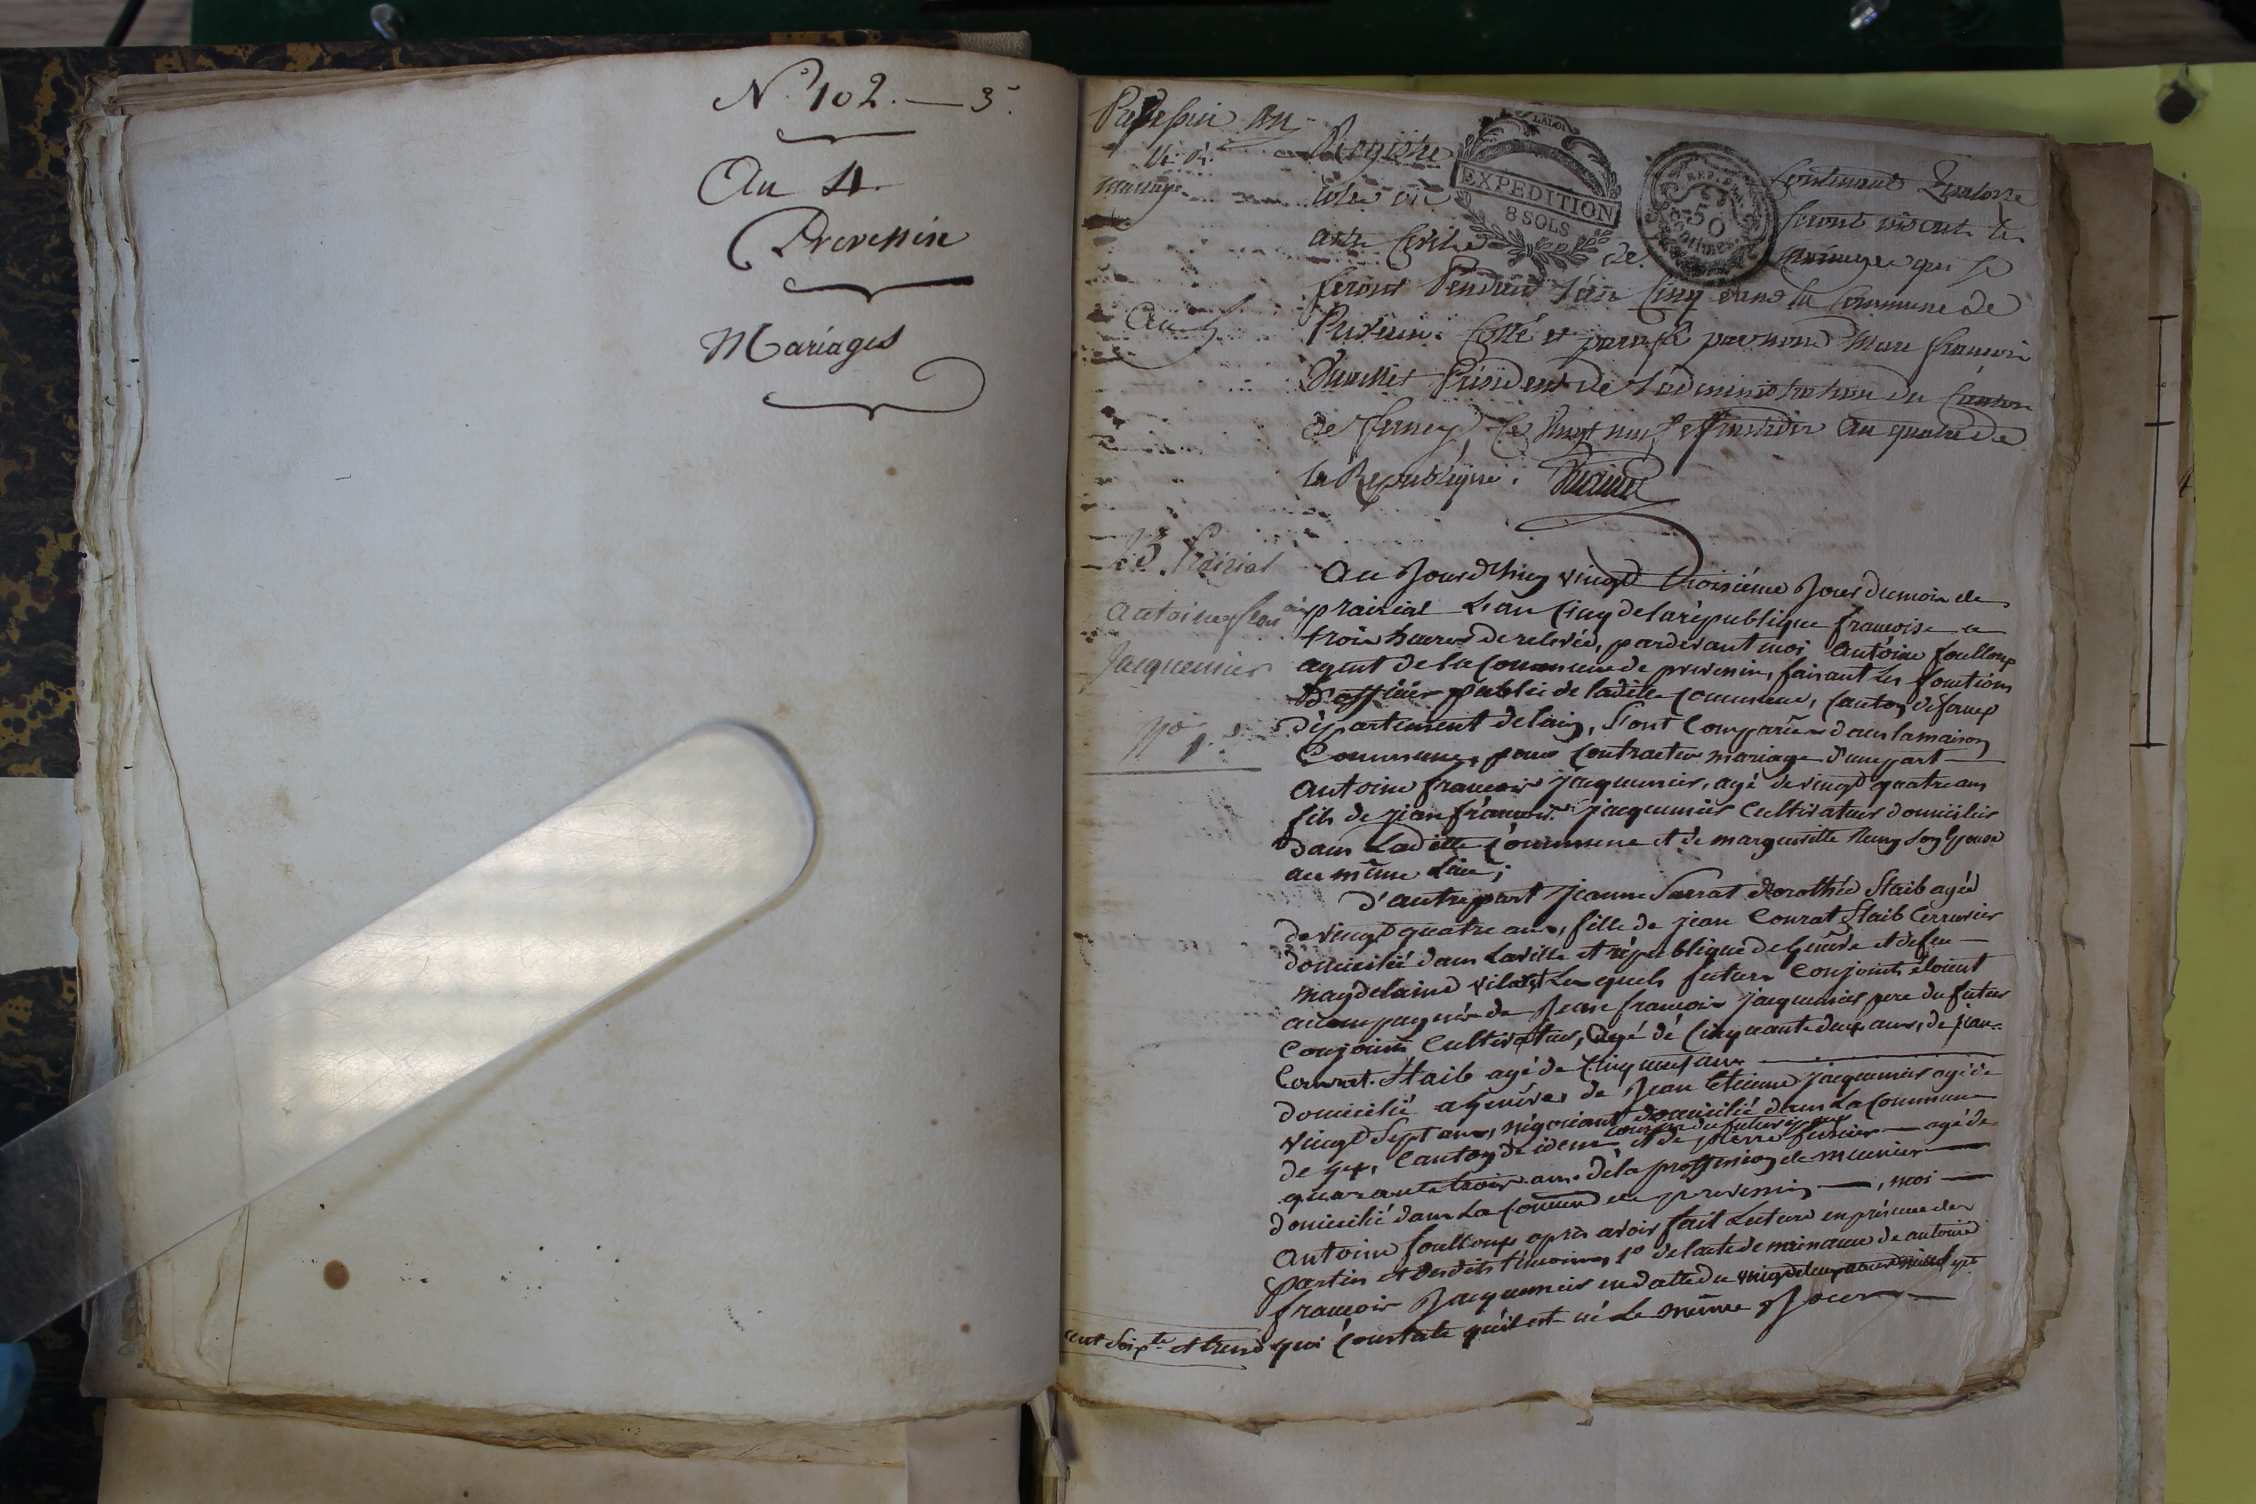 N.º 102. — 3.
An 4.
Prevessin
Mariages
Prevessin
Mariages
LA LOI
EXPEDITION
8 SOLS
REP. FRA.
50
centimes
Registre contenant quatorze
seront inscrits les
acte Civile de mariages qui se
feront Pendant l'an Cinq dans la Commune de
Prevessin. Cotté et paraphé par nous Marc françois
Président de l'administration du Canton
de Ferney, Ce Vingt neuf fructidor an quatre de
la Republique.
An 5
23 Prairial
antoine fran ois
Jacquemier
Nº 1.er
au Jourd'huy vingt troisiéme Jour du mois de
prairial L'an Cinq de la république francoise a
trois heures de relevée, pardevant moi Antoine foulloup
agent de la Commune de prevessin, faisant les fonctions
D'officier public de ladite commune, Canton de fernex
département de lain, Sont Comparus dans la maison
Commune, pour Contracter mariage d'une part
Antoine francois jacquemier, agé de vingt quatre ans
fils de jean francois jacquemier Cultivateur domicilié
dans Laditte Commune et de margueritte son Epouse
au même Lieu;
D'autre part Jeanne Sarrat dorothée Staib agée
de vingt quatre ans, fille de jean Conrat Staib Cerrurier
domicilié dans La ville et république de Genève et de feu
magdelaine vilard Lesquels futurs Conjoints étoient
accompagnés de Jean francois jacquemier pere du futur
Conjoint Cultivateur, agé de Cinquante deux ans, de jean
Conrat Staib agé de Cinquante ans
domicilié a Genève, de Jean Etienne jacquemier agé de
vingt Sept ans, négociant domicilié dans La Commune
cousin du futur époux
de gex, Canton de idem et de pierre fusier agé de
quarante trois ans. de la proffession de meunier
domicilié dans La Commune de prevessin, moi
Antoine foulloup apres avoir fait Lecture en présence des
parties et desdits témoins, 1º de l'acte de naissance de antoine
francois Jacquemier en datte du vingt deux mil sept
cent soix.te et treize qui Constate qu'il est né Le même Jour